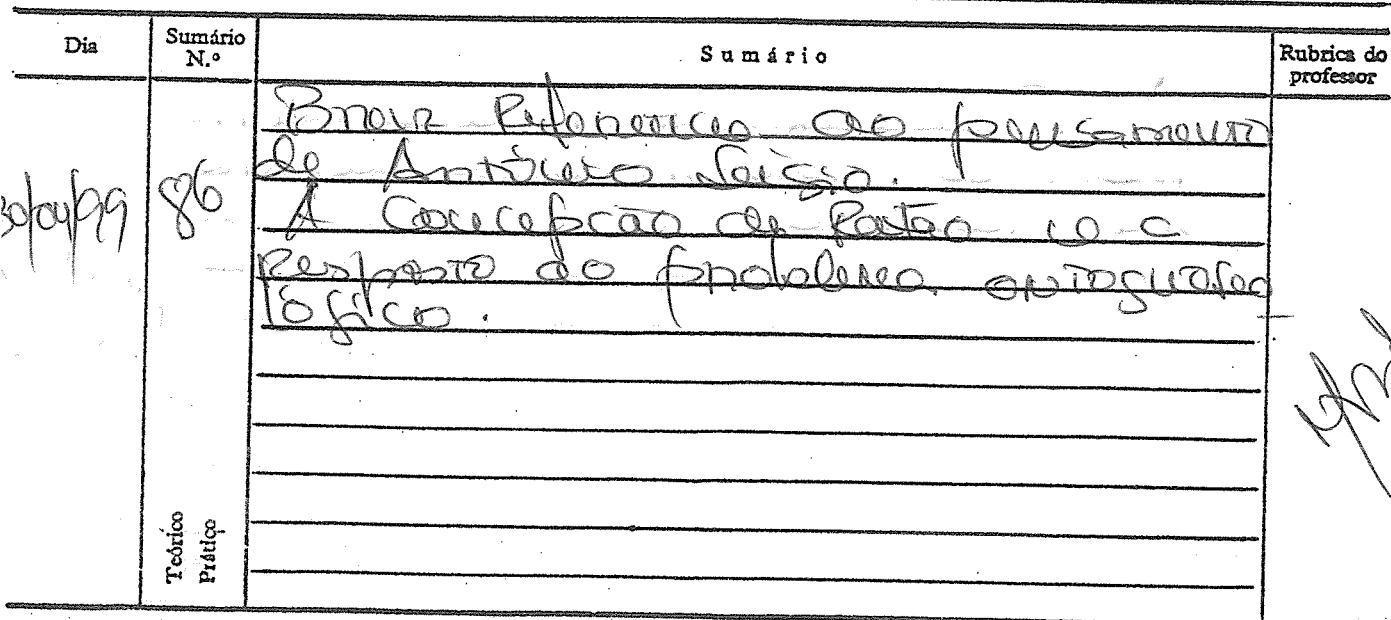 Dia
Sumário N.º
Sumário
Rubrica do professor
30/04/99
86
Breve Referência ao pensamento
de António Sérgio.
A Concepção de Razão e a
Resposta do problema ontognoseo
lógico.
Teórico
Prático